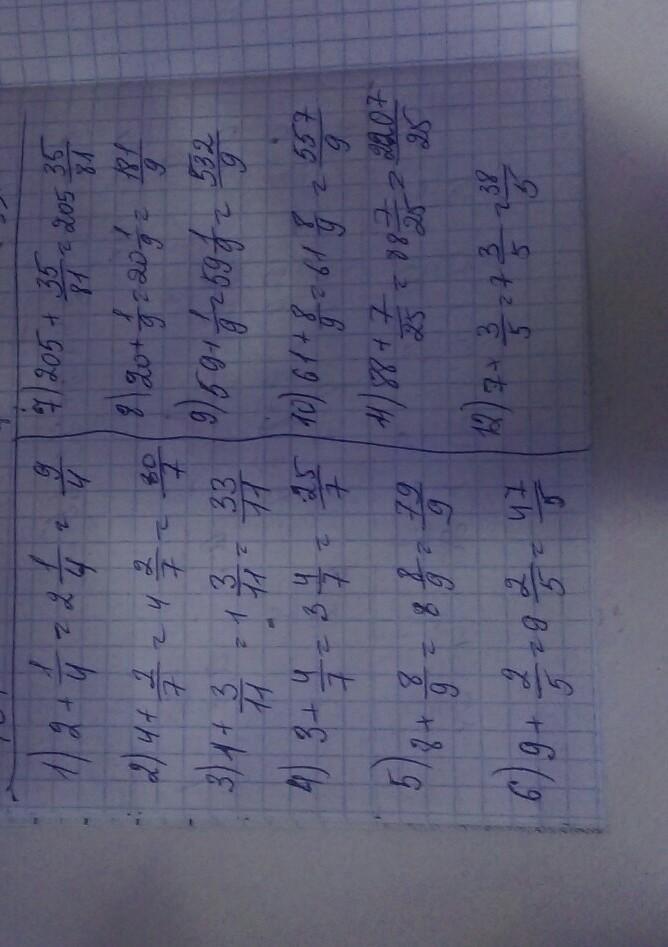 1) 2 + 1/4 = 2 1/4 = 9/4
2) 4 + 2/7 = 4 2/7 = 30/7
3) 1 + 3/11 = 1 3/11 = 33/11
4) 3 + 4/7 = 3 4/7 = 25/7
5) 8 + 8/9 = 8 8/9 = 79/9
6) 9 + 2/5 = 9 2/5 = 47/5
7) 205 + 35/81 = 205 35/81
8) 20 + 1/9 = 20 1/9 = 181/9
9) 59 + 1/9 = 59 1/9 = 532/9
10) 61 + 8/9 = 61 8/9 = 557/9
11) 88 + 7/25 = 88 7/25 = 2207/25
12) 7 + 3/5 = 7 3/5 = 38/5